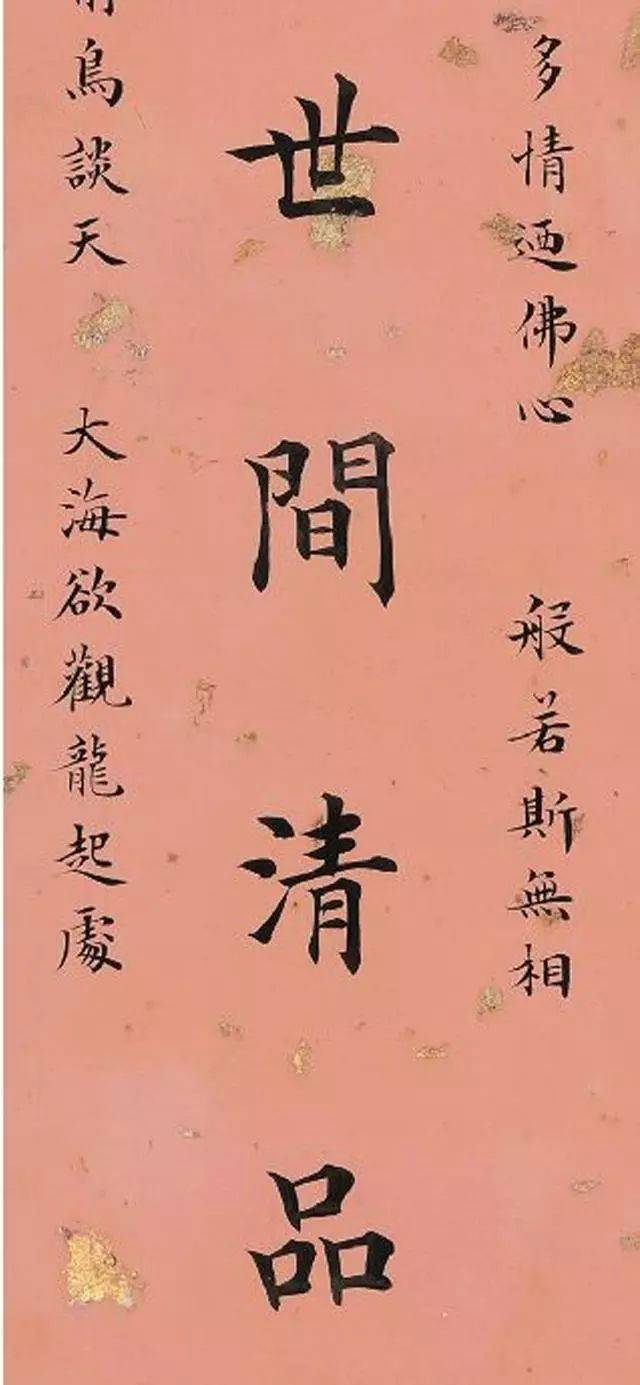 多情迺佛心 般若斯無相
世間清品
鳥談天 大海欲觀龍起處